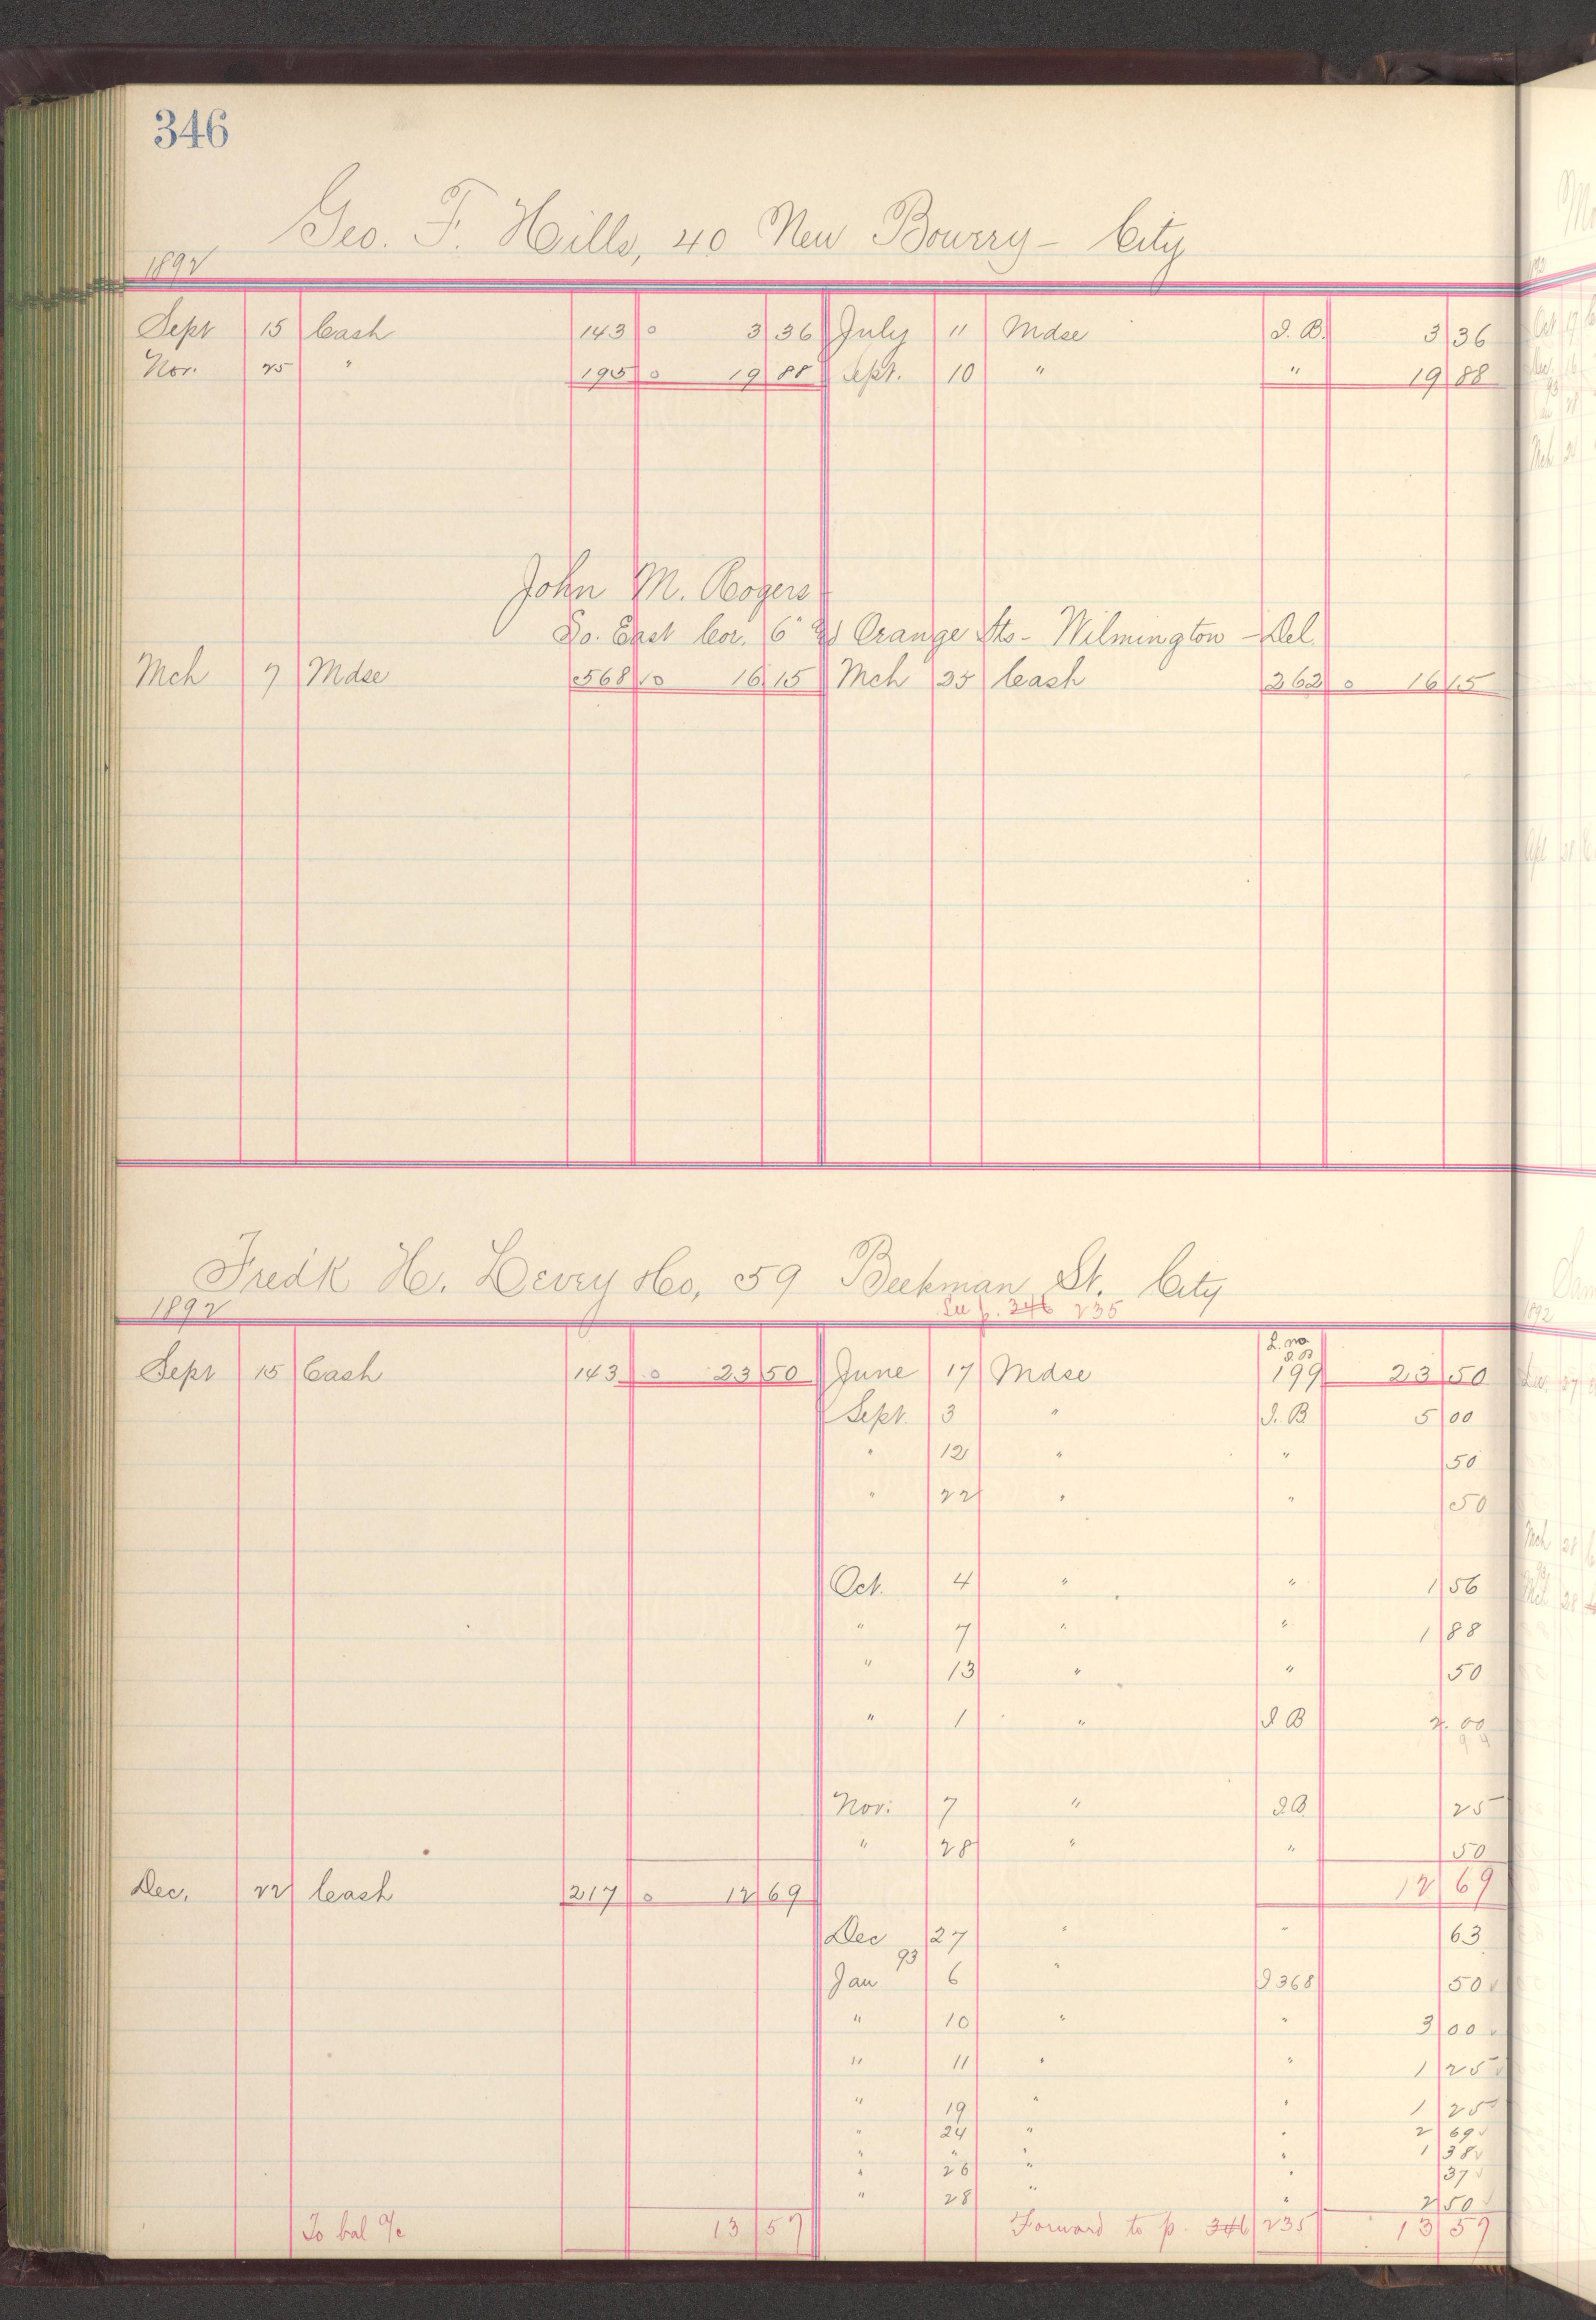 346
Geo. F. Hills, 40 New Bowery - City
1892
Sept 15 Cash 143 0 3 36 July 11 Mdse I. B. 3 36
Nov. 25 " 195 0 19 88 Sept. 10 " " 19 88
John M. Rogers
So. East Cor. 6" & Orange Sts - Wilmington - Del.
Mch 7 Mdse 568 10 16 15 Mch 25 Cash 262 0 16 15
Fred'k H. Levey & Co, 59 Beekman St. City
1892 See p. 346 235
Sept 15 Cash 143 0 23 50 June 17 Mdse 199 23 50
Sept. 3 " I. B 5 00
" 12 " " 50
" 22 " " 50
Oct. 4 " " 1 56
" 7 " " 1 88
" 13 " " 50
" 1 " I B 2.00
Nov. 7 " I.B. 25
" 28 " " 50
Dec. 22 Cash 217 0 12 69 12 69
Dec 27 " " 63
93
Jan 6 " I 368 50 ✓
" 10 " " 3 00 ✓
" 11 " " 1 25 ✓
" 19 " " 1 25 ✓
" 24 " " 2 69 ✓
" " " " 1 38 ✓
" 26 " " 37 ✓
" 28 " " 2 50 ✓
To bal a/c 13 57 Forward to p. 346 235 13 57